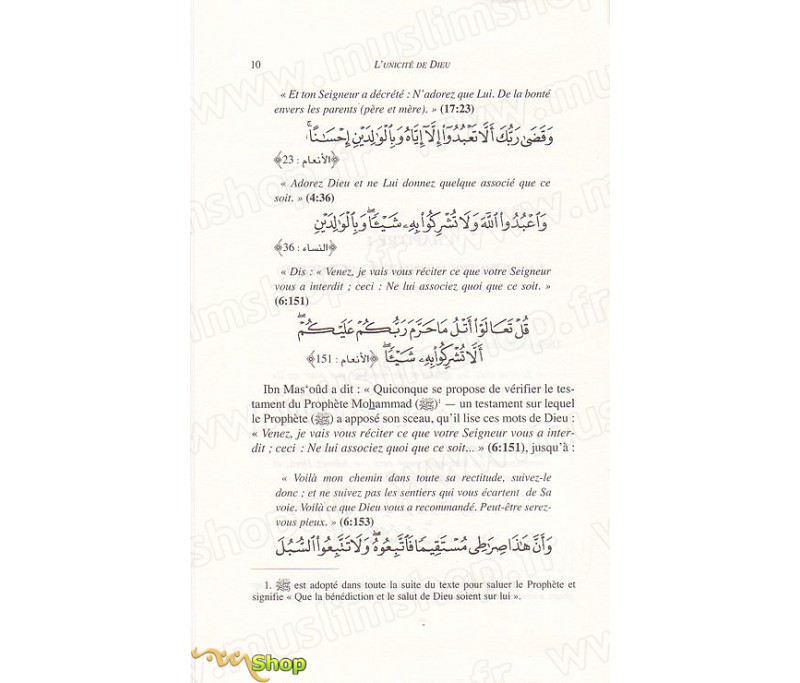 10
L'UNICITÉ DE DIEU
« Et ton Seigneur a décrété : N'adorez que Lui. De la bonté
envers les parents (père et mère). » (17:23)
وَقَضَىٰ رَبُّكَ أَلَّا تَعْبُدُوٓا۟ إِلَّآ إِيَّاهُ وَبِٱلْوَٰلِدَيْنِ إِحْسَٰنًا ۚ
﴿الأنعام : 23﴾
« Adorez Dieu et ne Lui donnez quelque associé que ce
soit. » (4:36)
وَٱعْبُدُوا۟ ٱللَّهَ وَلَا تُشْرِكُوا۟ بِهِۦ شَيْـًٔا ۖ وَبِٱلْوَٰلِدَيْنِ
﴿النساء : 36﴾
« Dis : « Venez, je vais vous réciter ce que votre Seigneur
vous a interdit ; ceci : Ne lui associez quoi que ce soit. »
(6:151)
قُلْ تَعَالَوْا۟ أَتْلُ مَا حَرَّمَ رَبُّكُمْ عَلَيْكُمْ ۖ
أَلَّا تُشْرِكُوا۟ بِهِۦ شَيْـًٔا ۖ ﴿الأنعام : 151﴾
Ibn Mas‘oûd a dit : « Quiconque se propose de vérifier le tes-
tament du Prophète Mohammad (ﷺ)¹ — un testament sur lequel
le Prophète (ﷺ) a apposé son sceau, qu'il lise ces mots de Dieu :
« Venez, je vais vous réciter ce que votre Seigneur vous a inter-
dit ; ceci : Ne lui associez quoi que ce soit... » (6:151), jusqu'à :
« Voilà mon chemin dans toute sa rectitude, suivez-le
donc ; et ne suivez pas les sentiers qui vous écartent de Sa
voie. Voilà ce que Dieu vous a recommandé. Peut-être serez-
vous pieux. » (6:153)
وَأَنَّ هَٰذَا صِرَٰطِى مُسْتَقِيمًا فَٱتَّبِعُوهُ ۖ وَلَا تَتَّبِعُوا۟ ٱلسُّبُلَ
1. ﷺ est adopté dans toute la suite du texte pour saluer le Prophète et
signifie « Que la bénédiction et le salut de Dieu soient sur lui ».
Shop
www.muslimshop.fr